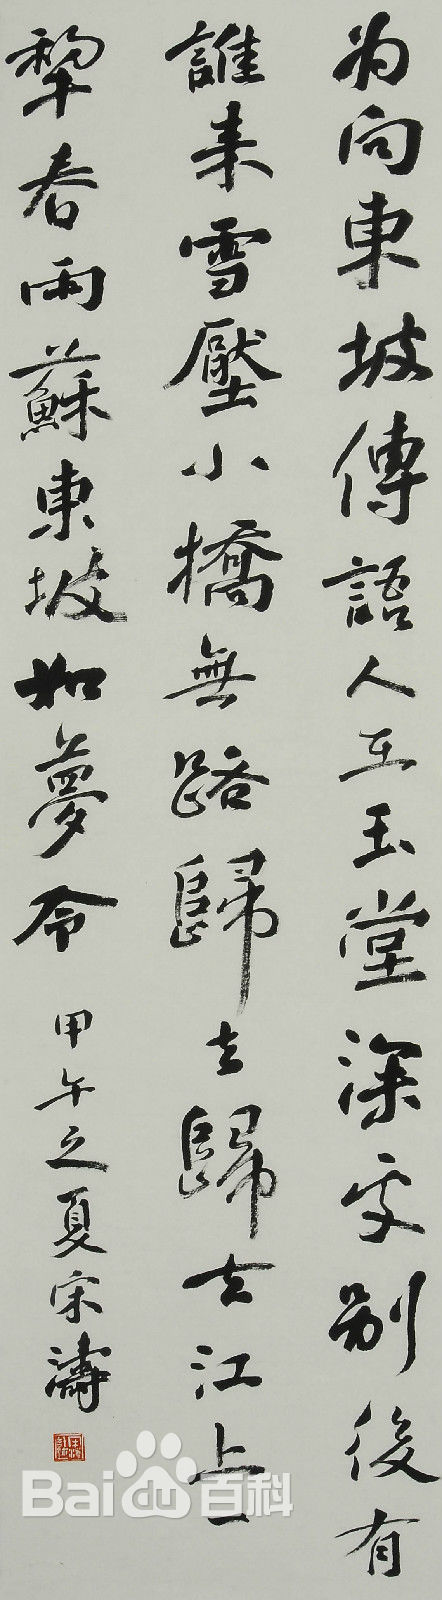 为向東坡傳語人在玉堂深處別後有
誰来雪壓小橋無路歸去歸去江上一
犂春雨蘇東坡如夢令
甲午之夏宋濤
Bai百科